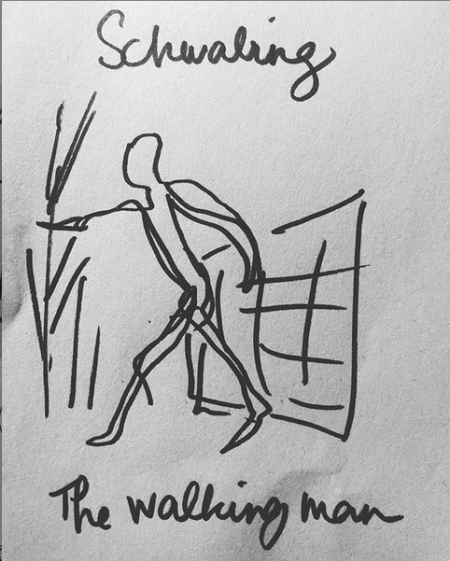 Schwaling
The walking man